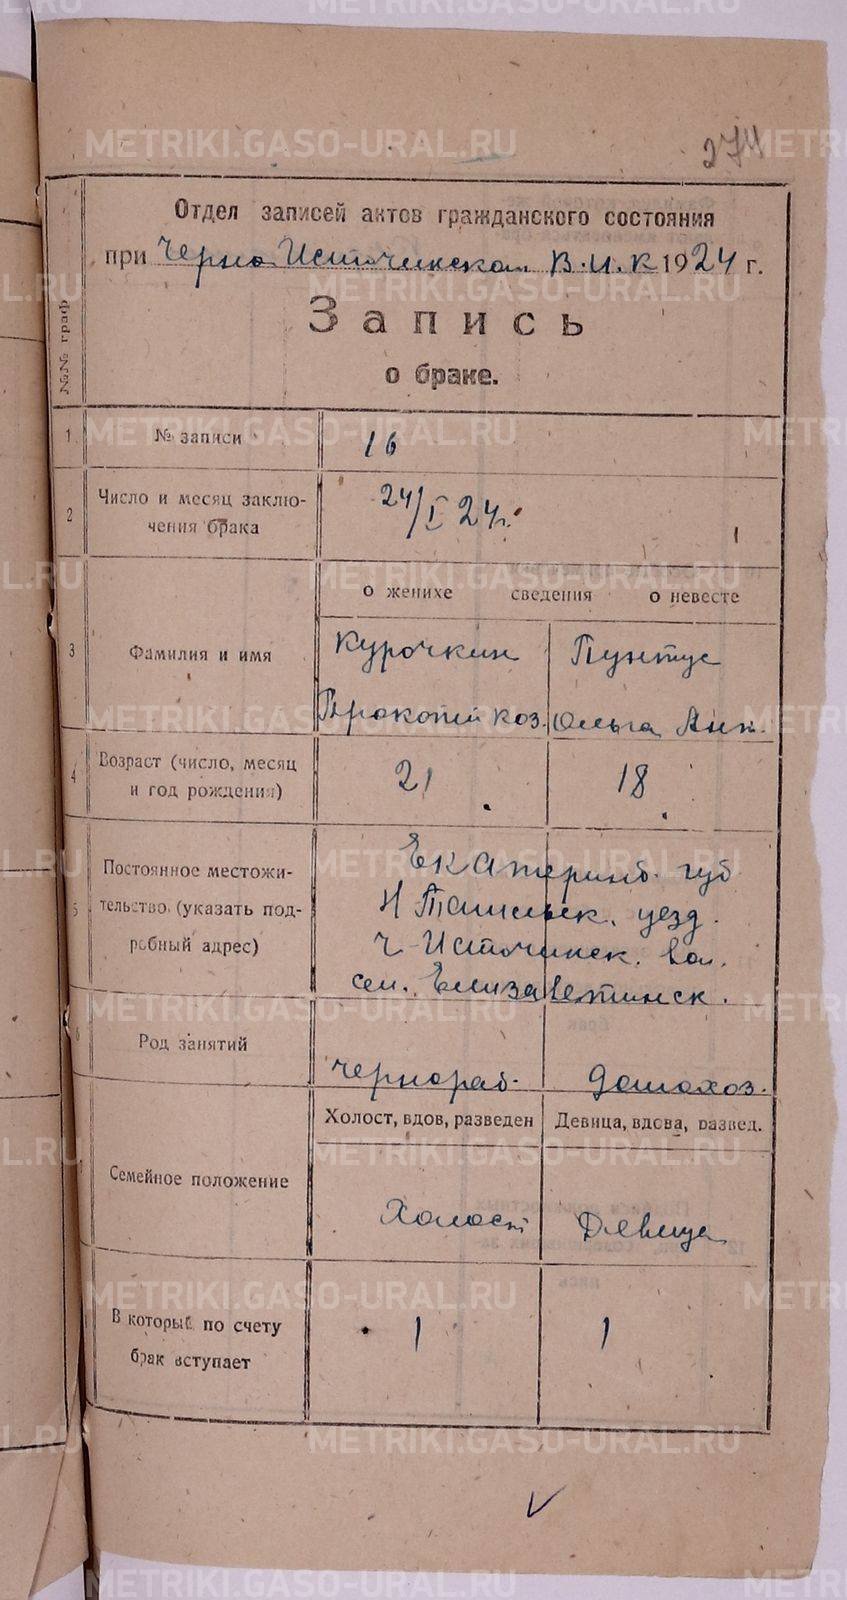 274
Отдел записей актов гражданского состояния
при Черно Источинской В.И.К 1924 г.
Запись
о браке.
№№ граф
1 № записи 16
2 Число и месяц заклю-
чения брака 24/I 24г.
о женихе сведения о невесте
3 Фамилия и имя Курочкин Пунтус
Прокопий Коз. Ольга Анн.
4 Возраст (число, месяц
и год рождения) 21 18
5 Постоянное местожи-
тельство (указать под-
робный адрес)
Екатеринб. губ
Н Тагильск. уезд.
Ч-Источинск. вол.
сел. Елизаветинск.
6 Род занятий чернораб. домохоз.
Холост, вдов, разведен Девица, вдова, развед.
Семейное положение Холост Девица
В который по счету
брак вступает 1 1
METRIKI.GASO-URAL.RU